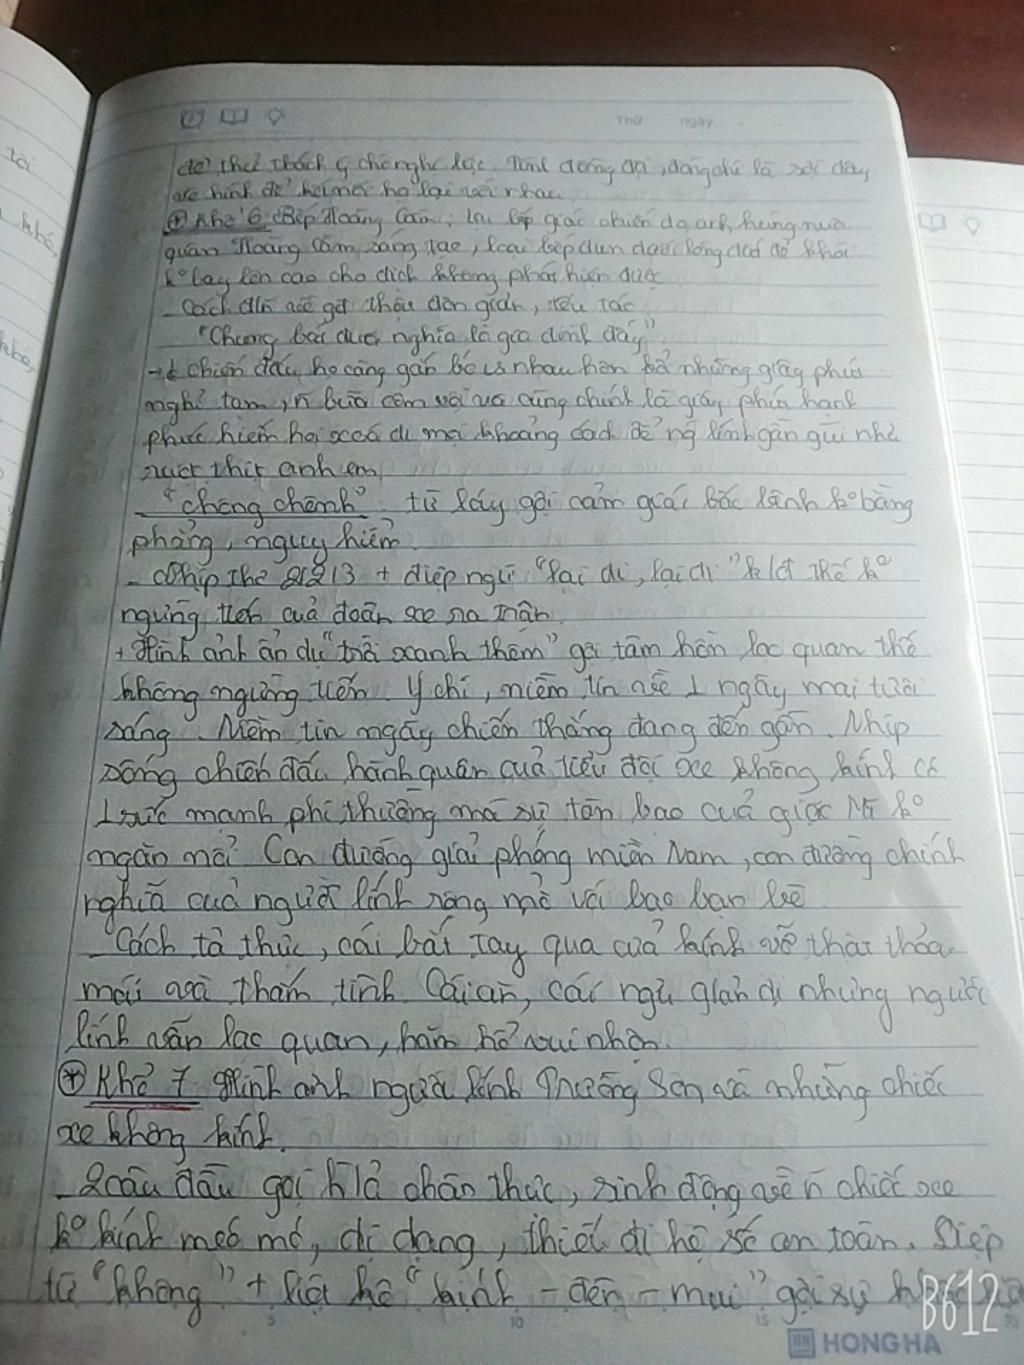 Thứ ngày
để thử thách ý chí nghị lực. Tình đồng đội, đồng chí là sợi dây
vô hình để kết nối họ lại với nhau
(+) Khổ 6: Bếp Hoàng Cầm: là bếp giác chiến do anh hùng nuôi
quân Hoàng Cầm sáng tạo, loại bếp đun dưới lòng đất để khói
k° bay lên cao cho địch không phát hiện được
- Cách đn về gđ thậu đơn giản, tếu táo
"Chung bát đũa nghĩa là gia đình đấy"
→ chiến đấu họ càng gắn bó vs nhau hơn bởi những giây phút
nghỉ tạm, n bữa cơm vội vã cũng chính là giây phút hạnh
phúc hiếm hoi xoá đi mọi khoảng cách để ng lính gần gũi như
ruột thịt anh em
- "chông chênh" từ láy gợi cảm giác bấc lênh k° bằng
phẳng, nguy hiểm.
- Nhịp thơ 2/2/3 + điệp ngữ "lại đi, lại đi" k lđ thế k°
ngừng tiến của đoàn xe ra trận
+ Hình ảnh ẩn dụ "trời xanh thêm" gợi tâm hồn lạc quan thế
không ngừng tiến. Ý chí, niềm tin về 1 ngày mai tươi
sáng. Niềm tin ngày chiến thắng đang đến gần. Nhịp
sống chiến đấu, hành quân của tiểu đội xe không kính có
1 sức mạnh phi thường mà sự tàn bạo của giặc Mĩ k°
ngăn nổi. Con đường giải phóng miền Nam, con đường chính
nghĩa của người lính rộng mở với bao bạn bè
- Cách tả thực, cái bắt tay qua cửa kính vỡ thật thoải
mái và thắm tình. Cái ăn, cái ngủ giản dị nhưng người
lính vẫn lạc quan, hăm hở vui nhộn.
(+) Khổ 7 Hình ảnh người lính Trường Sơn và những chiếc
xe không kính.
- 2 câu đầu gợi h/ả chân thực, sinh động về n chiếc xe
k° kính méo mó, dị dạng, thiếu đi hệ số an toàn. Điệp
từ "không" + liệt kê "kính - đèn - mui" gợi sự
5 10 15 20
HONG HA
B612